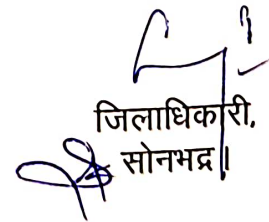 जिलाधिकारी,
सोनभद्र।